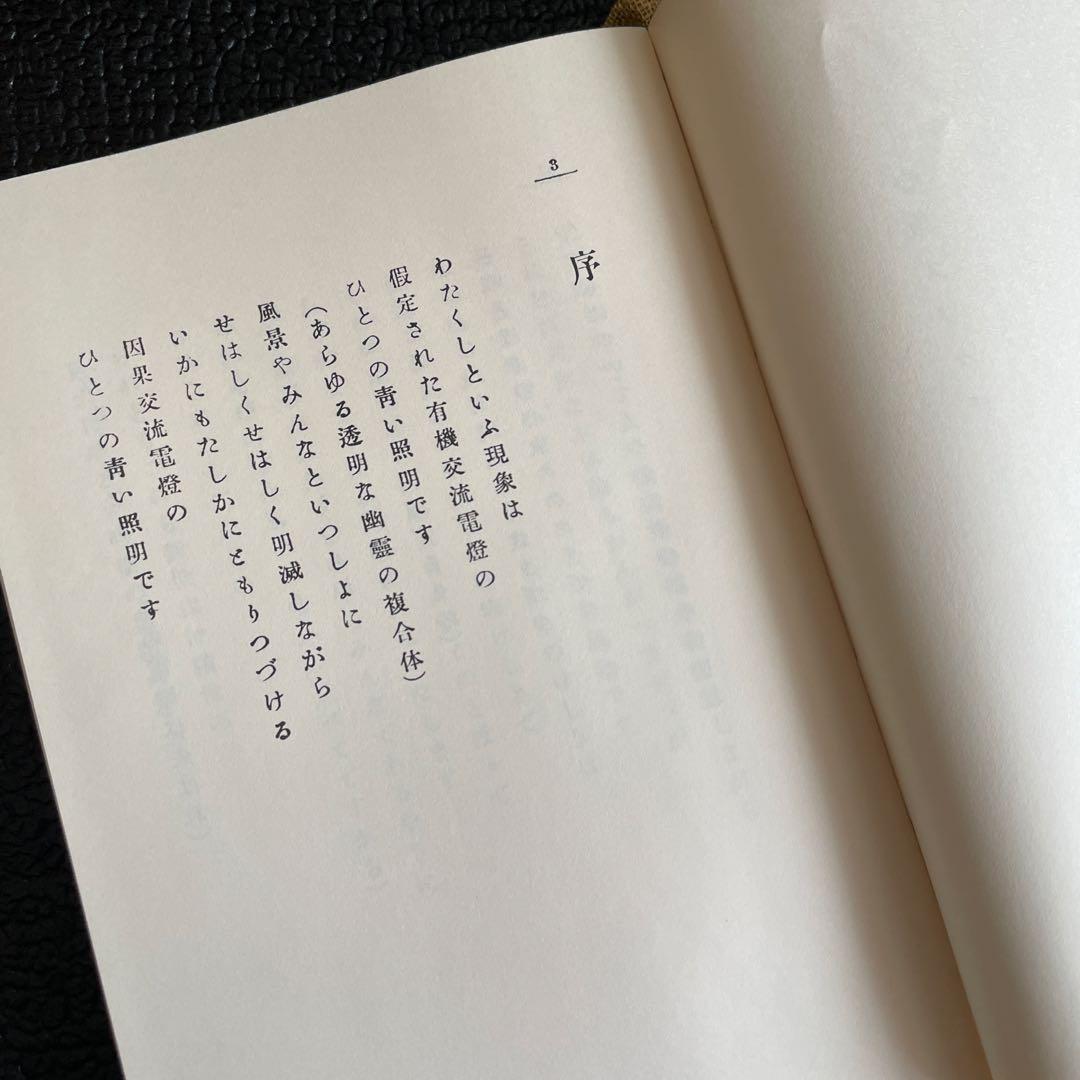 3
序
わたくしといふ現象は
假定された有機交流電燈の
ひとつの靑い照明です
（あらゆる透明な幽靈の複合体）
風景やみんなといつしよに
せはしくせはしく明滅しながら
いかにもたしかにともりつづける
因果交流電燈の
ひとつの靑い照明です